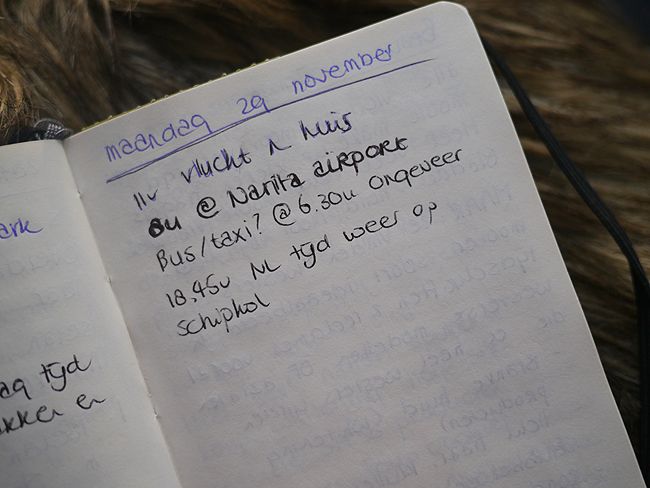 maandag 29 november
11u vlucht n huis
8u @ Narita airport
Bus/taxi? @ 6.30u ongeveer
18.45u NL tijd weer op
schiphol
ark
tijd
en